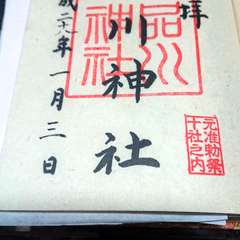 拝
元准勅祭
十社之内
川神社
品川
神社
成二十八年一月三日